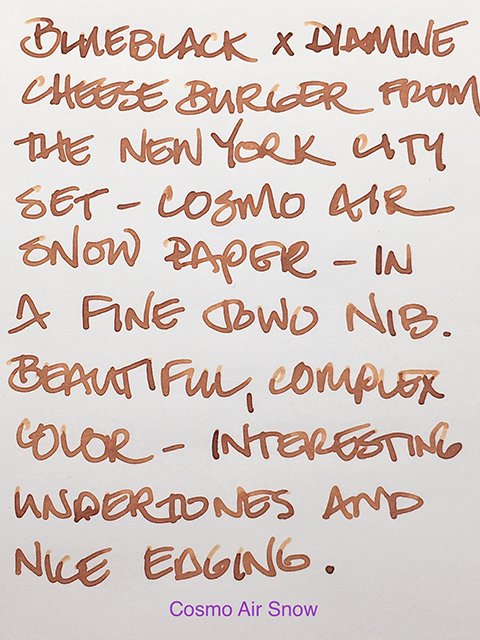 BLUEBLACK X DIAMINE
CHEESE BURGER FROM
THE NEW YORK CITY
SET - COSMO AIR
SNOW PAPER - IN
A FINE JOWO NIB.
BEAUTIFUL, COMPLEX
COLOR - INTERESTING
UNDERTONES AND
NICE EDGING.
Cosmo Air Snow